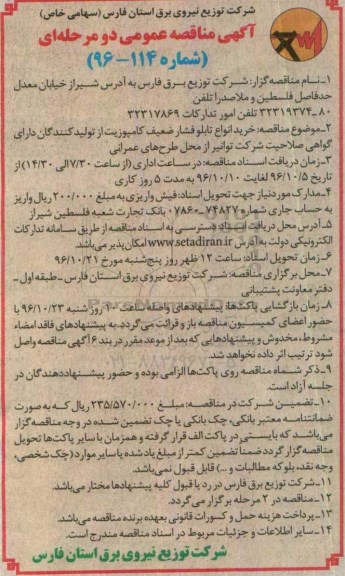 شرکت توزیع نیروی برق استان فارس (سهامی خاص)
آگهی مناقصه عمومی دو مرحله‌ای
(شماره ۱۱۴-۹۶)
۱-نـام مناقصه‌گزار: شـرکت توزیع بـرق فارس به آدرس شیـراز خیابان معدل
حدفاصل فلسطین و ملاصدرا تلفن
۸۰-۳۲۳۱۹۳۷۴ تلفن امور تدارکات ۳۲۳۱۷۸۶۹
۲-موضوع مناقصه: خرید انواع تابلو فشار ضعیف کامپوزیت از تولیدکنندگان دارای
گواهی صلاحیت شرکت توانیر از محل طرح‌های عمرانی
۳-زمان دریافت اسـناد مناقصه: در سـاعات اداری (از ساعت ۷/۳۰ الی ۱۴/۳۰) از
تاریخ ۹۶/۱۰/۵ لغایت ۹۶/۱۰/۱۰ به مدت ۵ روز کاری
۴-مدارک مورد نیاز جهت تحویل اسناد: فیش واریزی به مبلغ ۲۰۰/۰۰۰ ریال واریز
به حساب جاری شماره ۷۴۸۲۷-۰۷۸۶۰ بانک تجارت شعبه فلسطین شیراز
۵-آدرس محل دریافت اسناد: دسترسی به اسناد مناقصه از طریق سامانه تدارکات
الکترونیکی دولت به آدرس www.setadiran.ir امکان‌پذیر می‌باشد.
۶-زمان تحویل اسناد: ساعت ۱۲ ظهر روز پنج‌شنبه مورخ ۹۶/۱۰/۲۱
۷-محل برگزاری مناقصه: شـرکت توزیع نیروی برق اسـتان فـارس - طبقه اول -
دفتر معاونت پشتیبانی
۸-زمان بازگشایی پاکت‌ها: پیشنهادهای واصله ساعت ۱۰ روز شنبه ۹۶/۱۰/۲۳ با
حضور اعضای کمیسیون مناقصه باز و قرائت می‌گردد. به پیشنهادهای فاقد امضاء
مشروط، مخدوش و پیشنهادهایی که بعد از موعد مقرر در بند ۶ آگهی مناقصه واصل
شود ترتیب اثر داده نخواهد شد.
۹-ذکر شـماه مناقصه روی پاکت‌ها الزامی بوده و حضور پیشنهاددهندگان در
جلسه آزاد است.
۱۰-تضمین شـرکت در مناقصـه: مبلـغ ۲۳۵/۵۷۰/۰۰۰ ریال کـه به صورت
ضمانتنامـه معتبـر بانکی، چک بانکی یا چک تضمین شـده در وجه مناقصه‌گزار
می‌باشـد که بایسـتی در پاکت الف قرار گرفته و همزمان با سایر پاکت‌ها تحویل
مناقصه‌گزار گردد ضمنا تضمین کمتر از مبلغ یاد شده یا سایر موارد (چک شخصی،
وجه نقد، بلوکه مطالبات و ...) قابل قبول نمی‌باشد.
۱۱-شرکت توزیع برق فارس در رد یا قبول کلیه پیشنهادها مختار می‌باشد.
۱۲-مناقصه در ۲ مرحله برگزار می‌گردد.
۱۳-پرداخت هزینه حمل و کسورات قانونی بعهده برنده مناقصه می‌باشد.
۱۴-سایر اطلاعات و جزئیات مربوط در اسناد مناقصه مندرج است.
شرکت توزیع نیروی برق استان فارس